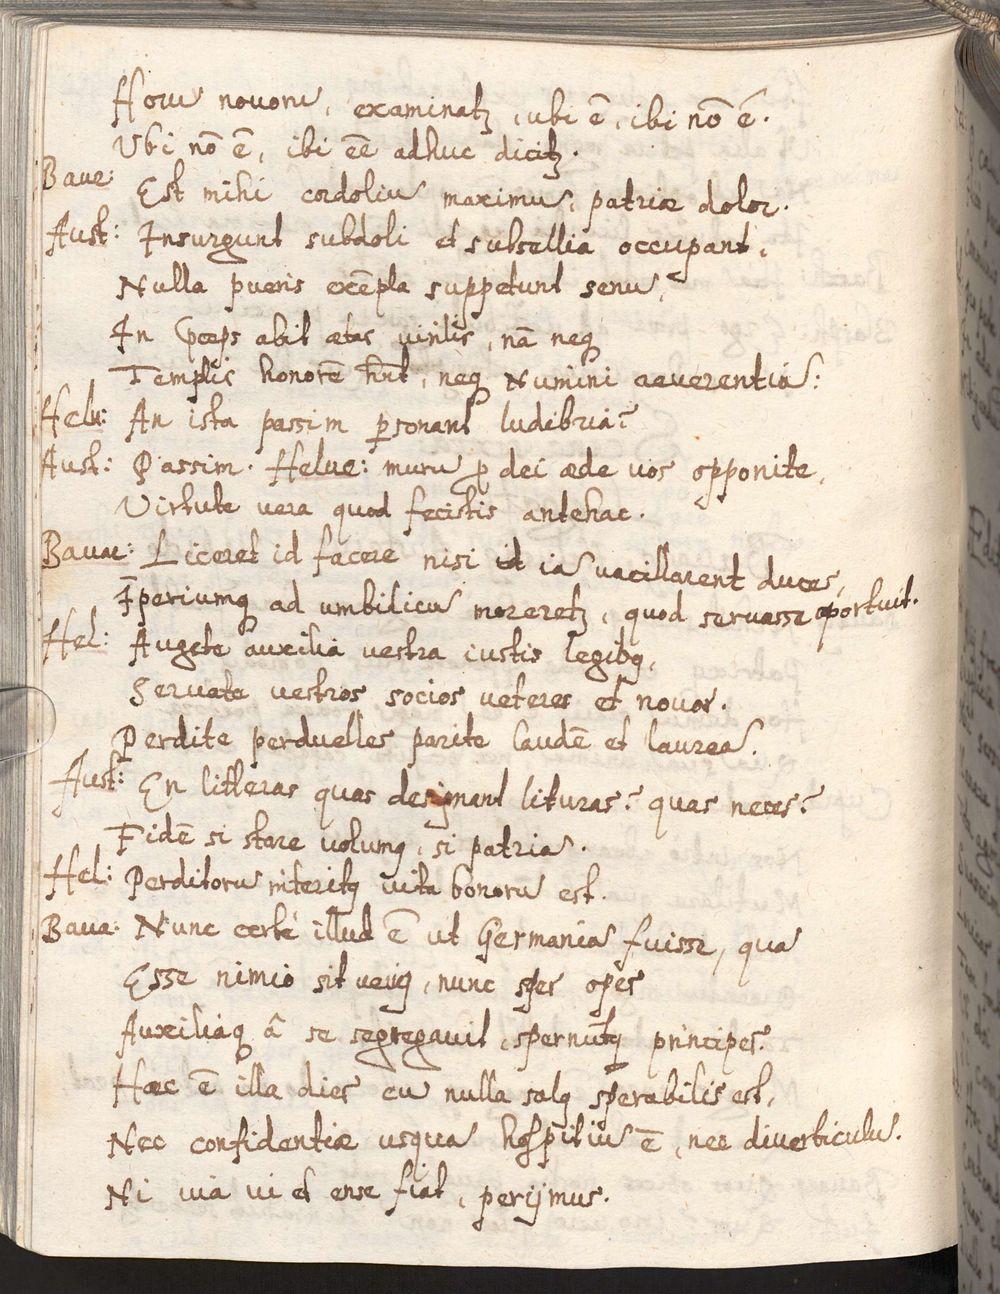 Horũ novorũ, examinatꝫ, ubi ẽ, ibi nõ ẽ.
Ubi nõ ẽ, ibi eẽ adhuc dicitꝫ.
Bavar: Est mihi cordoliũ maximũ, patriæ dolor.
Aust: Insurgunt subdoli et subsellia occupant,
Nulla pueris exẽpla suppetunt senũ,
In p̃ceps abit ætas virilis, nã neqꝫ
Templis honorẽ hñt, neqꝫ Numini reverentiã:
Helu: An ista passim ꝑsonant ludibria?
Aust: Passim. Helve: murũ ꝓ dei æde vos opponite,
Virtute vera quod fecistis antehac.
Bavar: Liceret id facere nisi et iã vacillarent duces,
Iperiumqꝫ ad umbilicũ moveretꝫ, quod servasse oportuit.
Hel: Augete auxilia vestra iustis legibꝫ,
Servate vestros socios veteres et novos.
Perdite perduelles parite laudẽ et laureã.
Aust: En litteras quas designant lituras? quas neces?
Fidẽ si stare volumꝫ, si patriã.
Hel: Perditorũ interitꝫ vita bonorũ est.
Bava: Nunc certè illud ẽ ut Germaniã fuisse, quã
Esse nimio sit veriꝫ, nunc spes opes
Auxiliaqꝫ â se segregavit, spernũtqꝫ principes.
Hæc ẽ illa dies cũ nulla salꝫ sperabilis est,
Nec confidentiæ usquã hospitiũ ẽ, nec diverticulũ.
Ni via vi et ense fiat, perijmus.